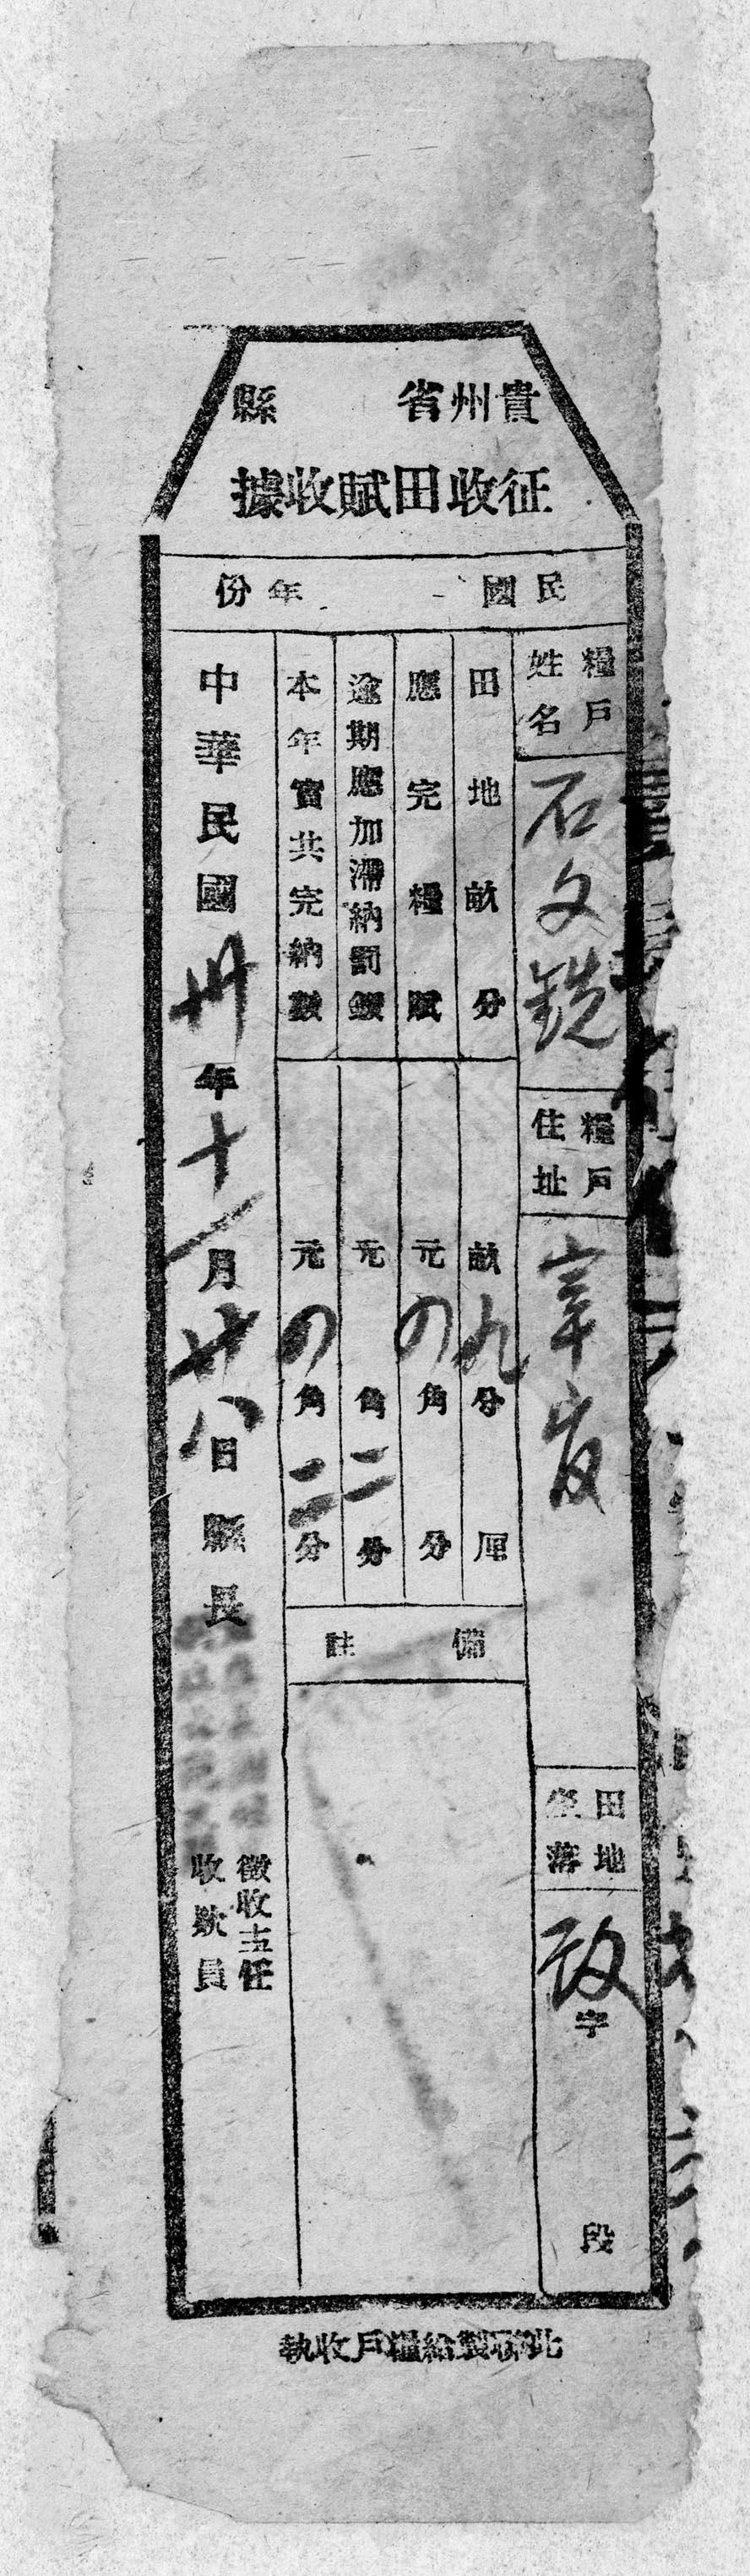 貴州省　縣
征收田賦收據
民國　年份
糧戶姓名
石文銑
糧戶住址
宰
田地坐落
政字　段
田地畝分
畝九分　厘
應完糧賦
元四角　分
逾期應加滯納罰鍰
元　角二分
本年實共完納數
元四角二分
備註
中華民國卅年十一月廿八日縣長
徵收主任
收款員
此聯製給糧戶收執